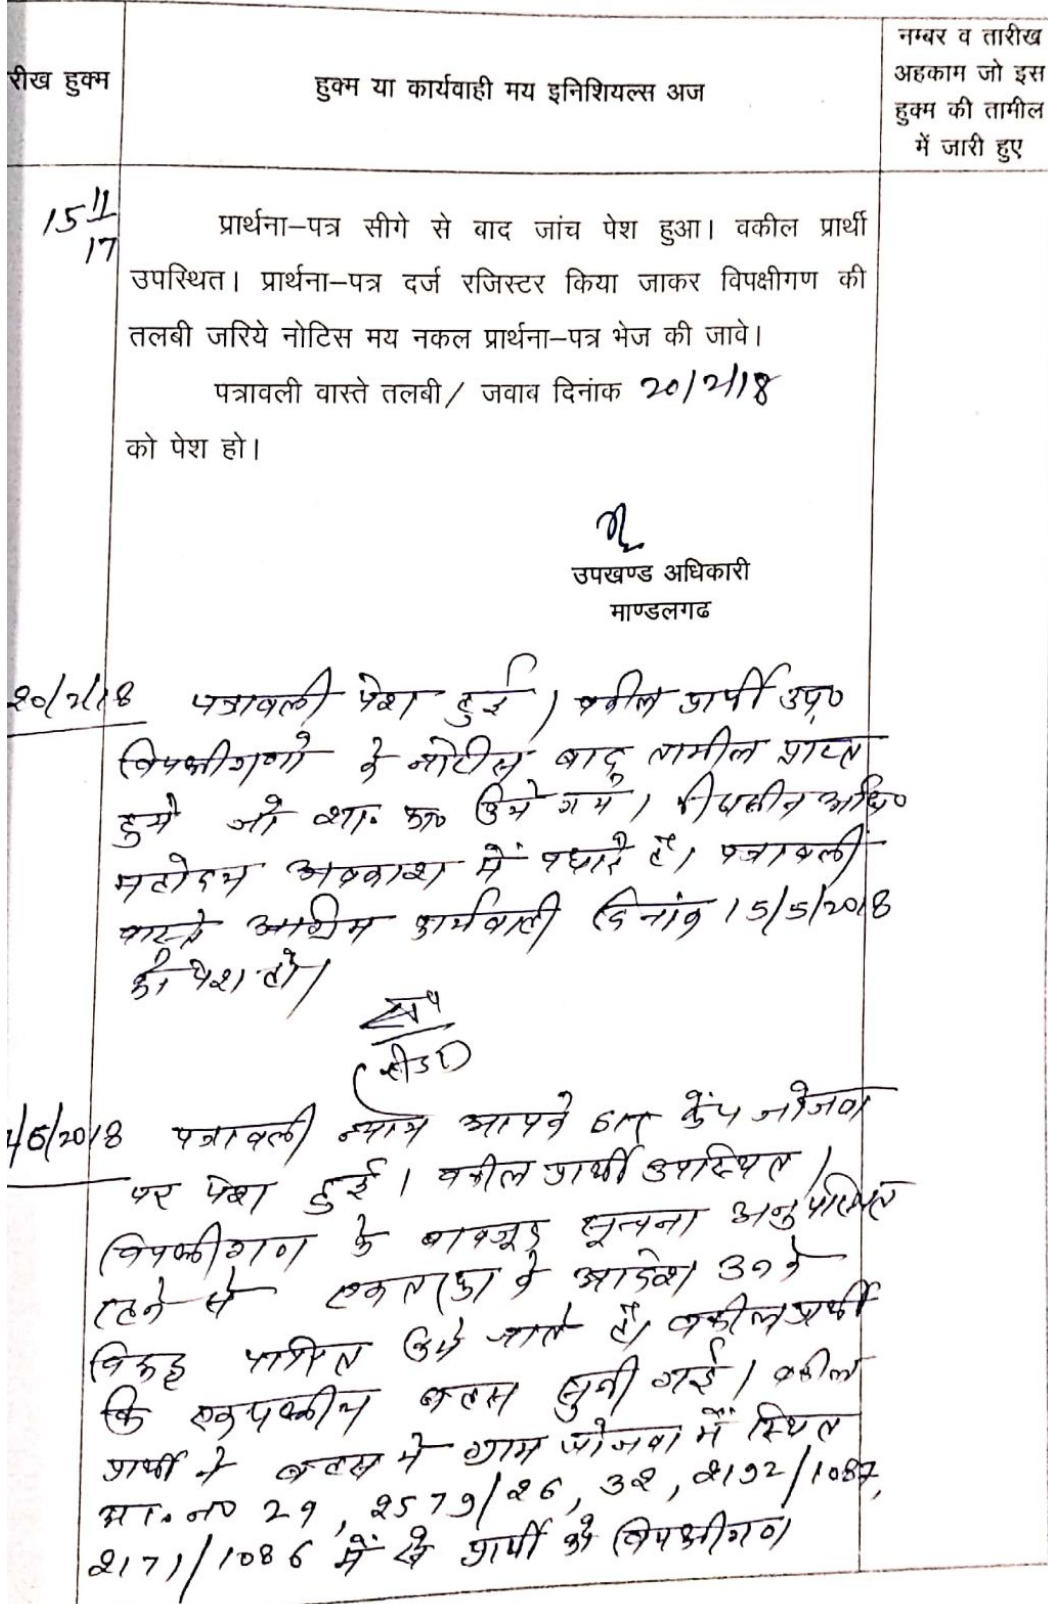 रीख हुक्म
हुक्म या कार्यवाही मय इनिशियल्स अज
नम्बर व तारीख
अहकाम जो इस
हुक्म की तामील
में जारी हुए
15 11
17
प्रार्थना-पत्र सीगे से बाद जांच पेश हुआ। वकील प्रार्थी
उपस्थित। प्रार्थना-पत्र दर्ज रजिस्टर किया जाकर विपक्षीगण की
तलबी जरिये नोटिस मय नकल प्रार्थना-पत्र भेज की जावे।
पत्रावली वास्ते तलबी/ जवाब दिनांक 20/2/18
को पेश हो।
उपखण्ड अधिकारी
माण्डलगढ
20/2/18 पत्रावली पेश हुई। वकील प्रार्थी उप०
विपक्षीगणो के नोटीस बाद तामील प्राप्त
हुये जो शा. फा० किये गये। पीठासीन अधि०
महोदय अवकाश में पधारे है। पत्रावली
वास्ते अग्रिम कार्यवाही दिनांक 15/5/2018
को पेश हो।
(रीडर)
/5/2018 पत्रावली न्याय आपके द्वार केंप जोजवा
पर पेश हुई। वकील प्रार्थी उपस्थित।
विपक्षीगण के बावजूद सूचना अनुपस्थित
रहने से एकतरफा के आदेश उनके
विरूद्ध पारित किये जाते है। वकील प्रार्थी
कि एकपक्षीय बहस सुनी गई। वकील
प्रार्थी ने बहस मे ग्राम जोजवा में स्थित
आ. न० 29, 2579/26, 32, 2192/1087,
2171/1086 में से प्रार्थी को विपक्षीगण